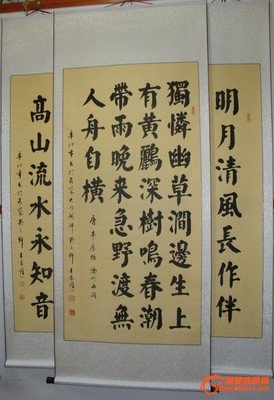 明月清風長作伴
獨憐幽草澗邊生上
有黃鸝深樹鳴春潮
帶雨晚来急野渡無
人舟自橫
唐韋應物 滁州西澗
高山流水永知音